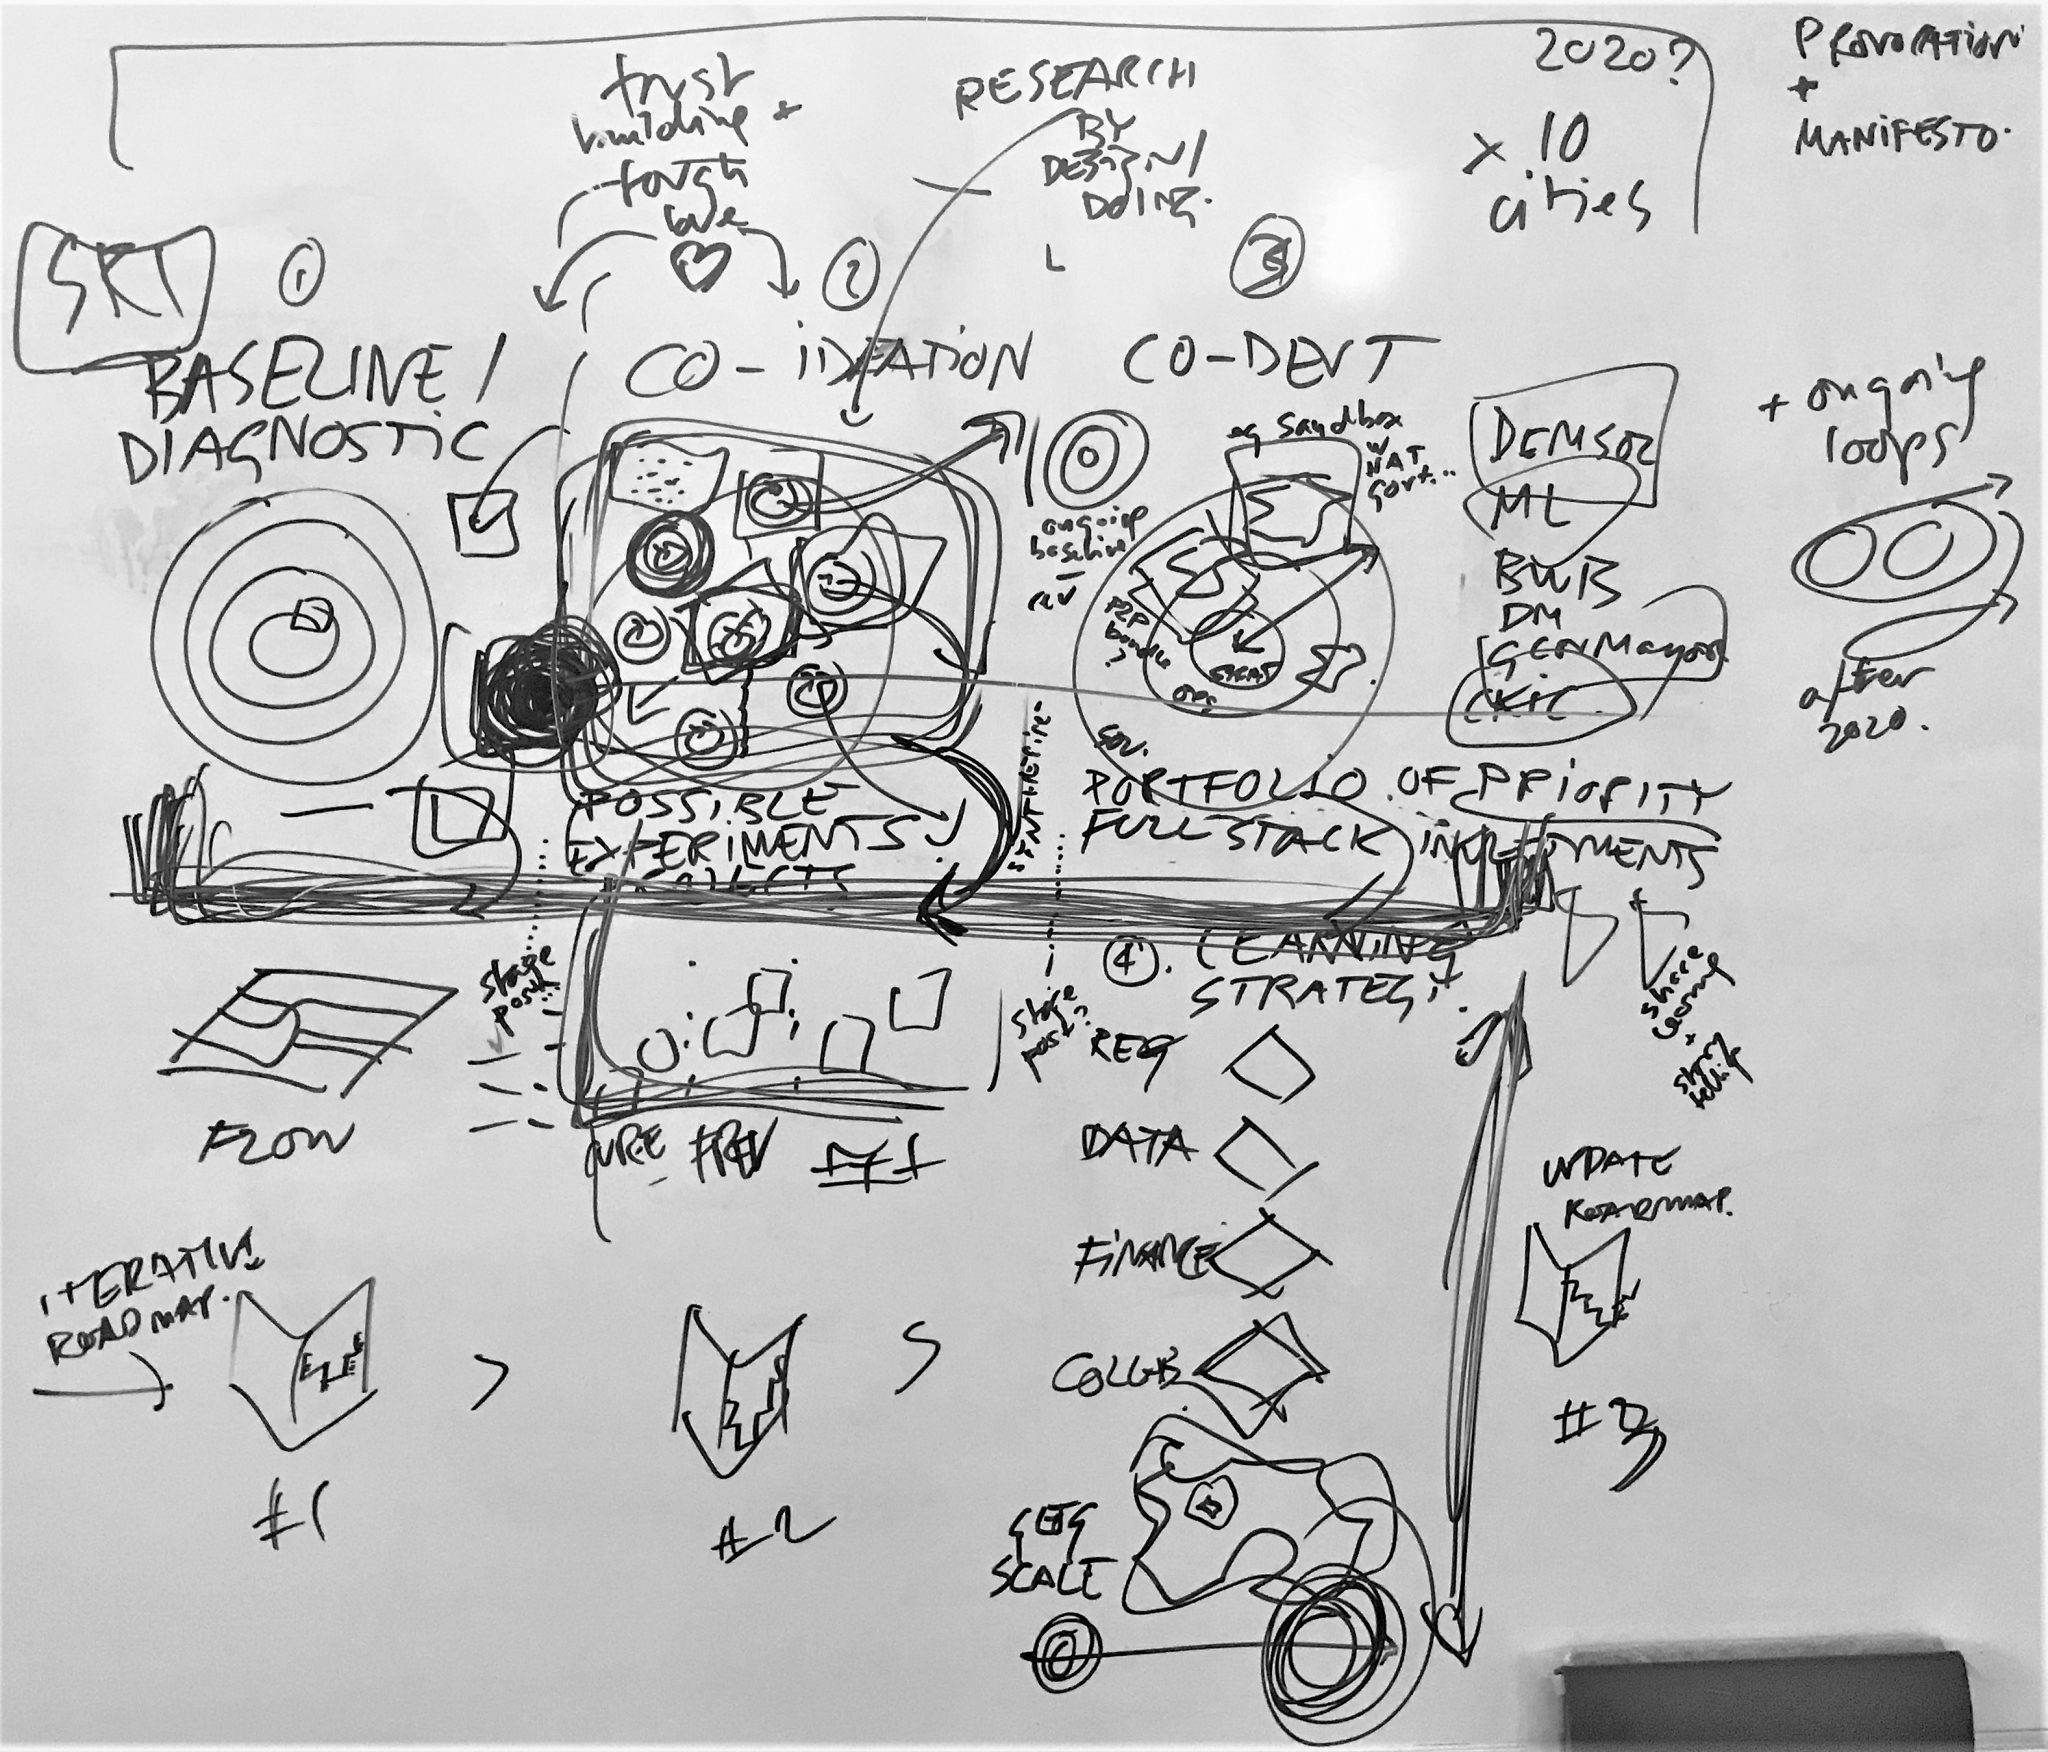 2020?
x 10
cities
PROVOCATION
+
MANIFESTO.
trust
building +
tough
love
RESEARCH
BY
DESIGN/
DOING.
SKT
1
BASELINE/
DIAGNOSTIC
2
CO-iDEATION
3
CO-DEVT
eg sandbox
w
NAT
Govt...
ongoing
baseline
DEMSOC
ML
BWB
DM
GENMayor
CKIC
+ ongoing
loops
after
2020.
POSSIBLE
EXPERIMENTS
P2P
bundle
?
GOV.
PORTFOLIO OF PRiORITY
FULL STACK
4. LEARNING
STRATEGY.
stage
post...
stage
post?
share
+
story
telling
FLOW
REG
DATA
FiNANCE
COLLAB
UPDATE
ROADMAP.
iTERATIVE
ROADMAP.
>
#1
#2
#3
SCALE